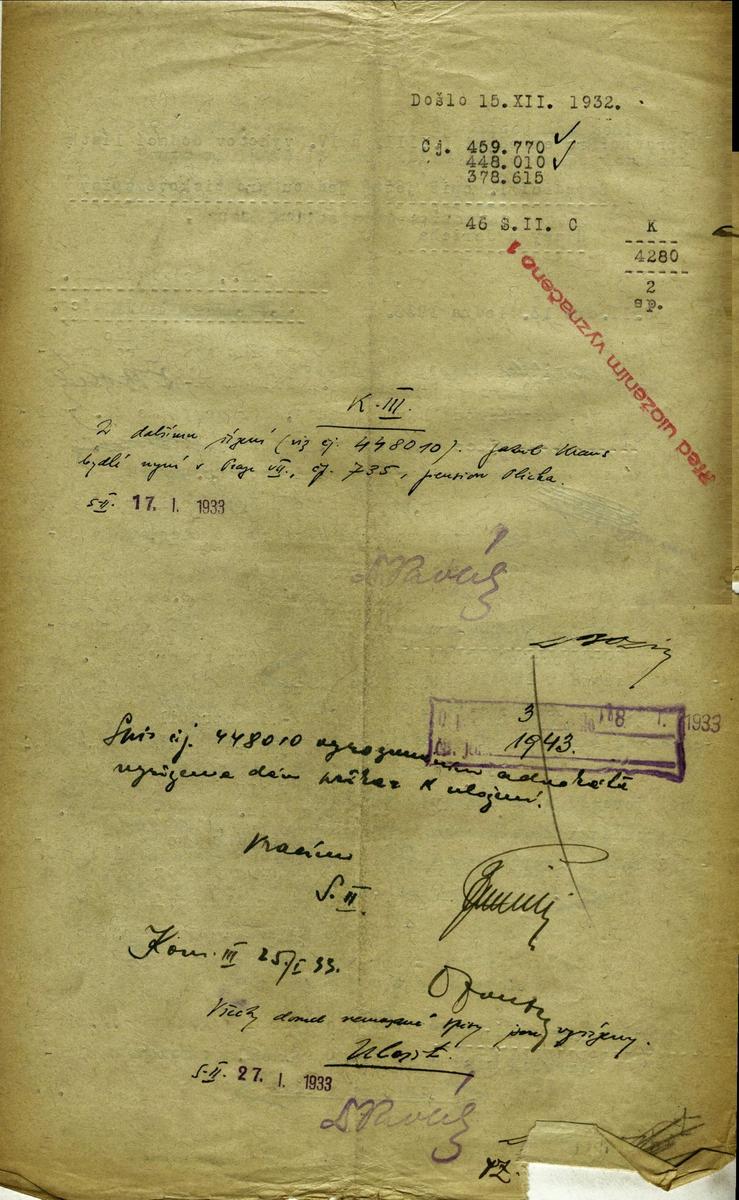 Došlo 15.XII. 1932.
Čj. 459.770
448.010
378.615
46 S.II. C K
4280
2
sp.
Před uložením vyznačeno !
K III.
K dalšímu řízení (viz čj. 448010). Jakub Kraus
bydlí nyní v Praze VII., čp. 735, pension Plicka.
S-II. 17. I. 1933
3 18 I. 1933
1943.
Spis čj. 448010 advokáta
vyřízena dám k uložení.
Vracím
S. II
Kom. III 25/I 33.
Všechny dosud spisy jsou vyřízeny.
Uložit.
S-II. 27. I. 1933